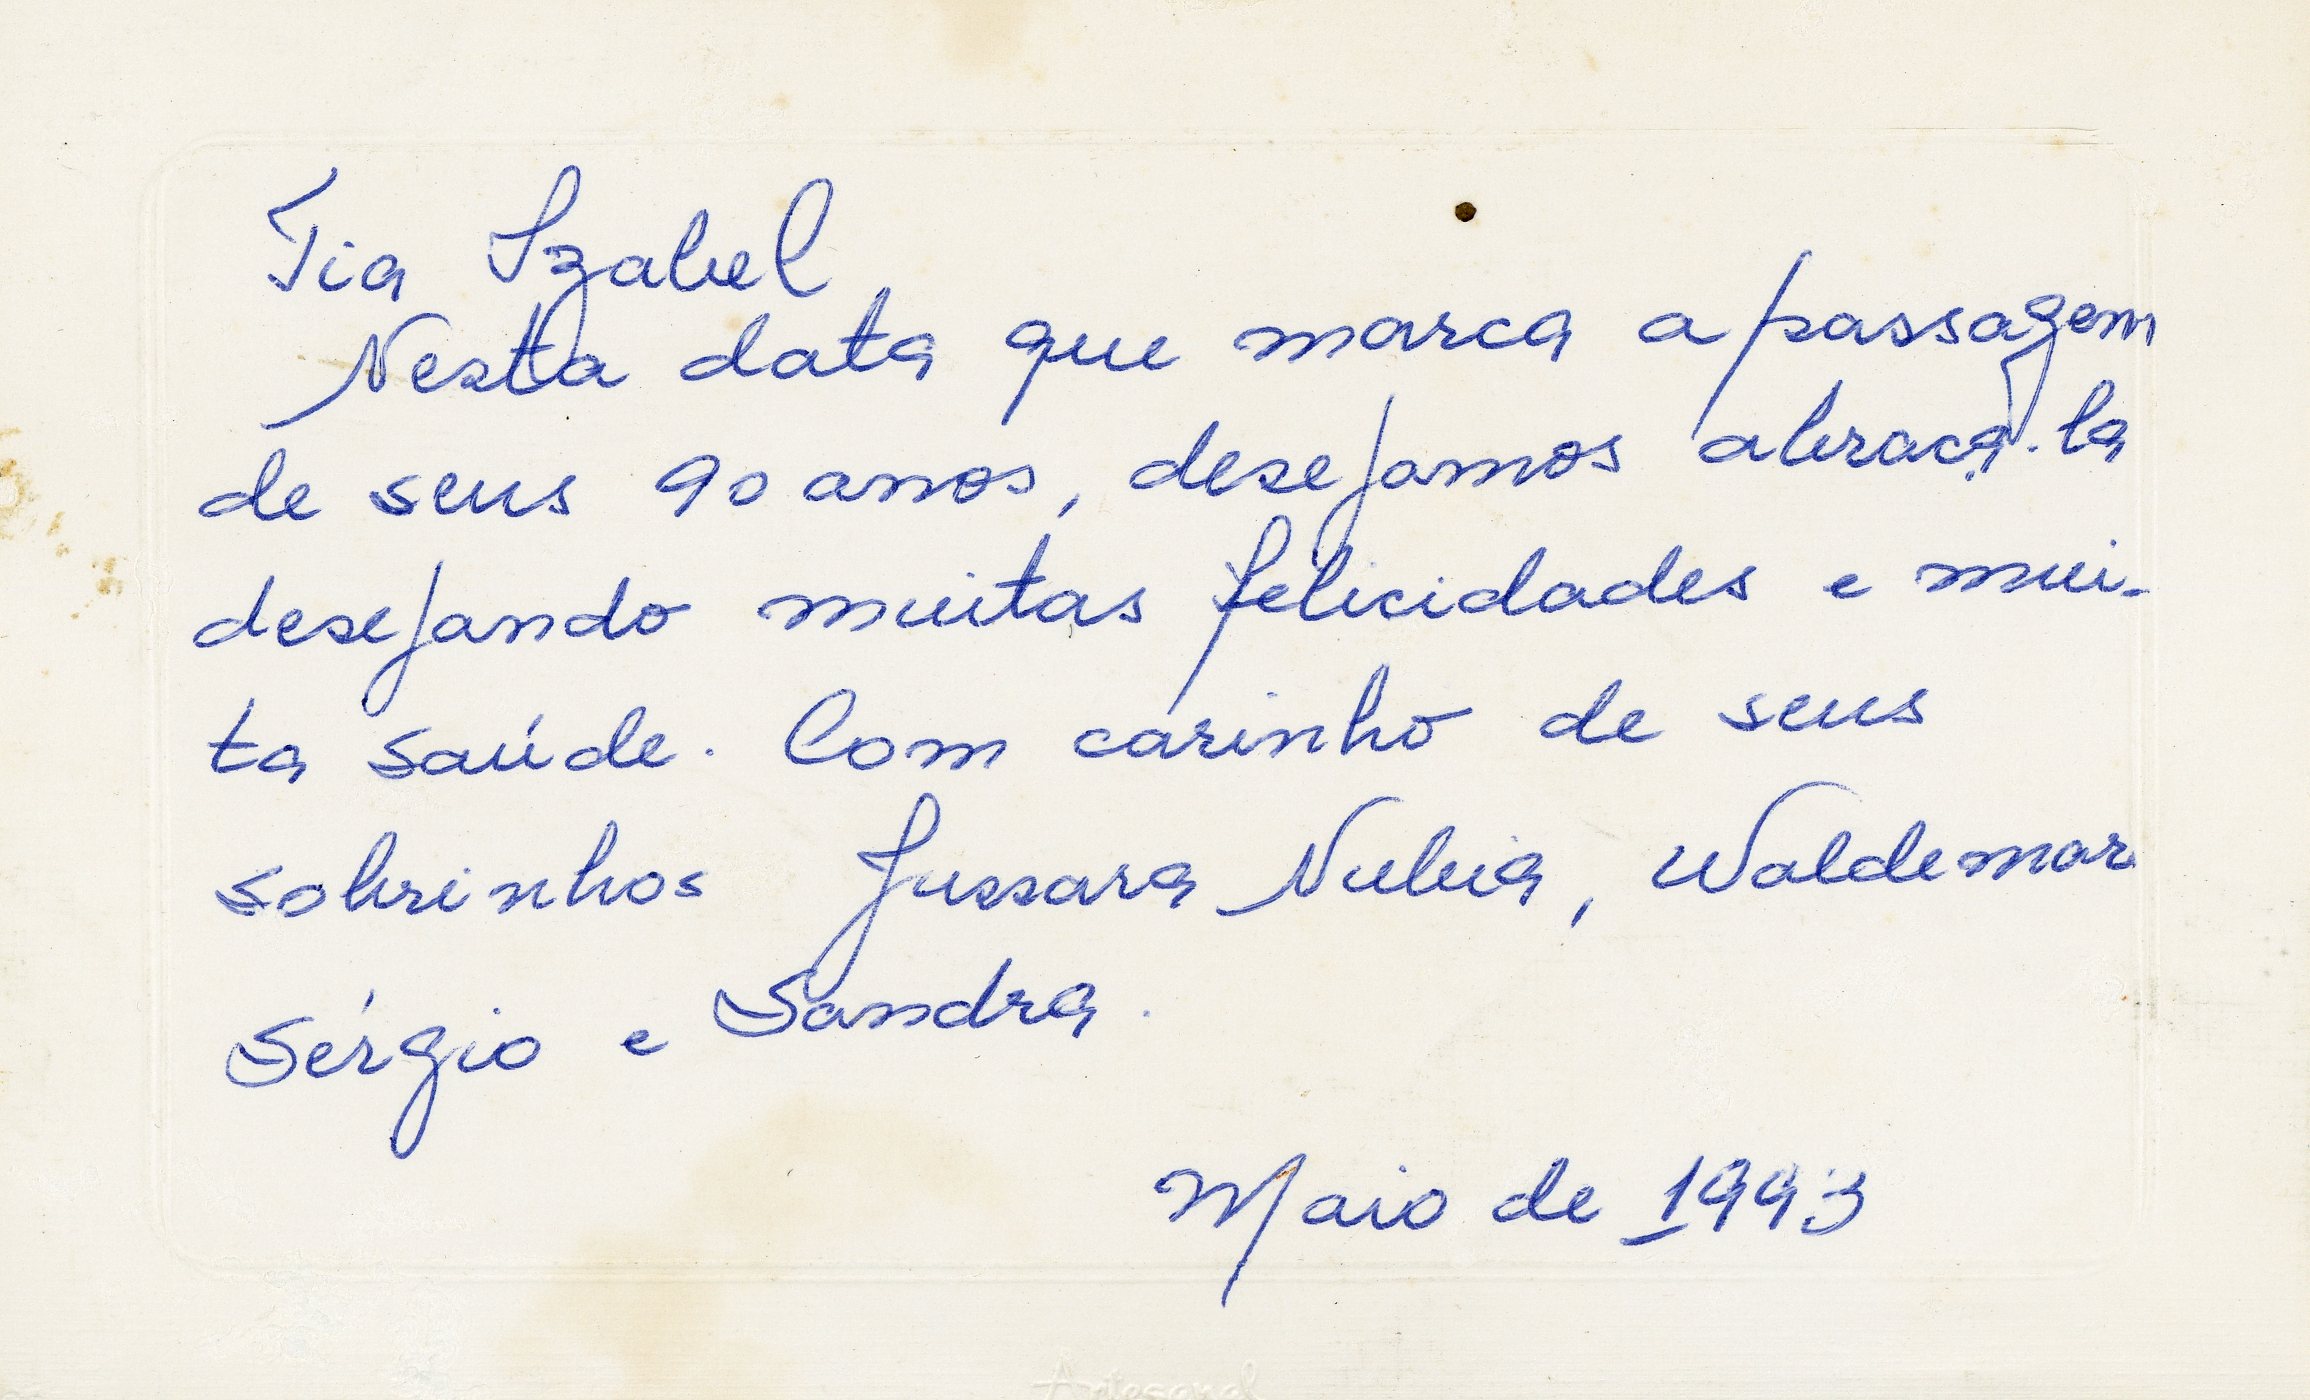 Tia Izabel
Nesta data que marca a passagem
de seus 90 anos, desejamos abraça-la
desejando muitas felicidades e mui-
ta saúde. Com carinho de seus
sobrinhos Jussara Nubia, Waldemar
Sérgio e Sandra.
Maio de 1993
Artesanal